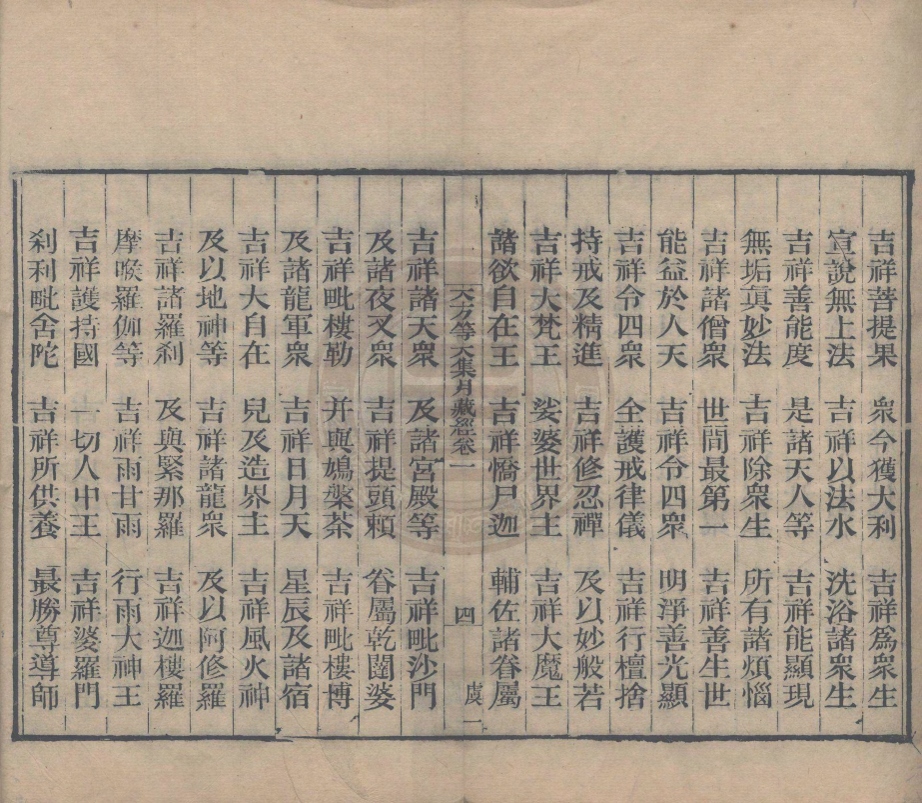 吉祥菩提果　衆今獲大利　吉祥爲衆生
宣說無上法　吉祥以法水　洗浴諸衆生
吉祥善能度　是諸天人等　吉祥能顯現
無垢眞妙法　吉祥除衆生　所有諸煩惱
吉祥諸僧衆　世間最第一　吉祥善生世
能益於人天　吉祥令四衆　明淨善光顯
吉祥令四衆　全護戒律儀　吉祥行檀捨
持戒及精進　吉祥修忍禪　及以妙般若
吉祥大梵王　娑婆世界主　吉祥大魔王
諸欲自在王　吉祥憍尸迦　輔佐諸眷屬
大方等大集月藏經卷一　四　虞一
吉祥諸天衆　及諸宮殿等　吉祥毗沙門
及諸夜叉衆　吉祥提頭賴　眷屬乾闥婆
吉祥毗樓勒　并與鳩槃茶　吉祥毗樓博
及諸龍軍衆　吉祥日月天　星辰及諸宿
吉祥大自在　兒及造界主　吉祥風火神
及以地神等　吉祥諸龍衆　及以阿修羅
吉祥諸羅刹　及與緊那羅　吉祥迦樓羅
摩睺羅伽等　吉祥雨甘雨　行雨大神王
吉祥護持國　一切人中王　吉祥婆羅門
刹利毗舍陀　吉祥所供養　最勝尊導師